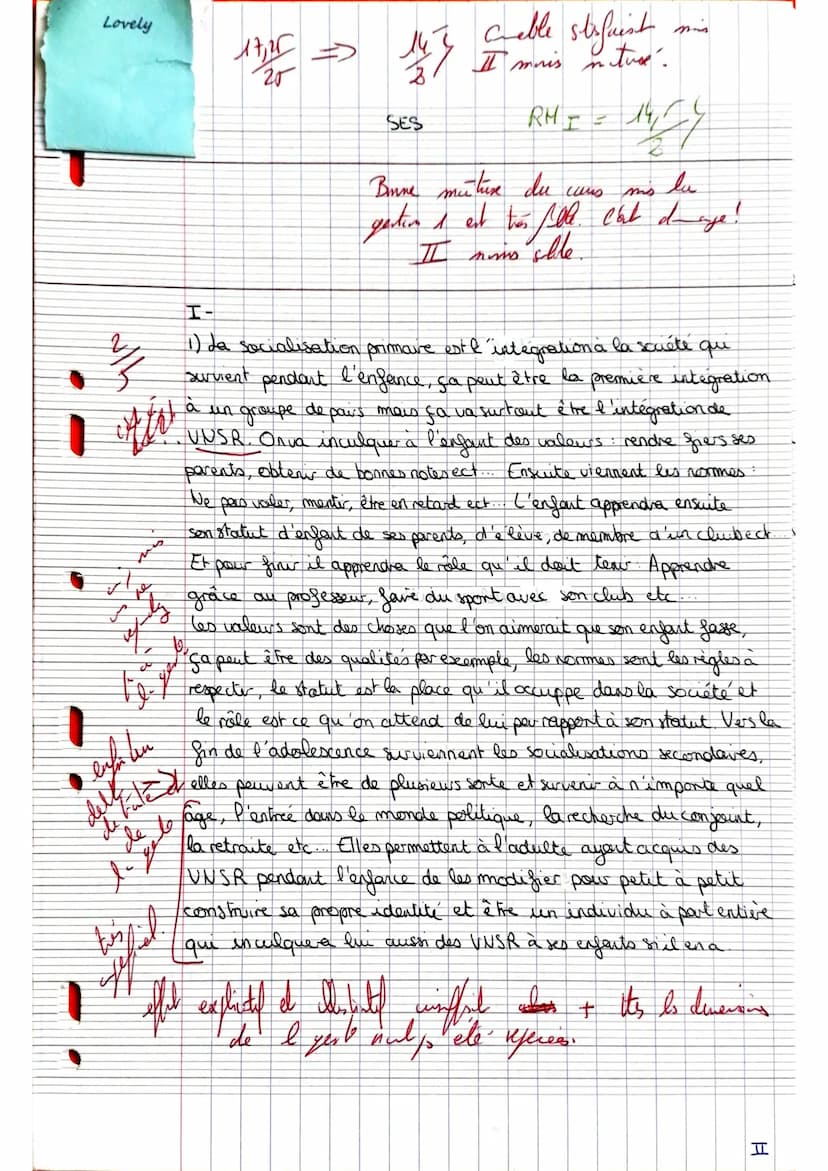 Lovely
17,25/20 => 14,5
II mais
SES
RM I = 14,5
Bonne maîtrise du cours mais la
question 1 est très C'est dommage !
II moins
I-
1) La socialisation primaire est l'intégration à la société qui
survient pendant l'enfance, ça peut être la première intégration
à un groupe de pairs mais ça va surtout être l'intégration de
VNSR. On va inculquer à l'enfant des valeurs : rendre fiers ses
parents, obtenir de bonnes notes ect... Ensuite viennent les normes :
Ne pas voler, mentir, être en retard ect... L'enfant apprendra ensuite
son statut d'enfant de ses parents, d'élève, de membre d'un club ect...
Et pour finir il apprendra le rôle qu'il doit tenir : Apprendre
grâce au professeur, faire du sport avec son club etc...
Les valeurs sont des choses que l'on aimerait que son enfant fasse,
ça peut être des qualités par exemple, les normes sont les règles à
respecter, le statut est la place qu'il occuppe dans la société et
le rôle est ce qu'on attend de lui par rapport à son statut. Vers la
fin de l'adolescence surviennent les socialisations secondaires,
elles peuvent être de plusieurs sorte et survenir à n'importe quel
âge, l'entrée dans le monde politique, la recherche du conjoint,
la retraite etc... Elles permettent à l'adulte ayant acquis des
VNSR pendant l'enfance de les modifier pour petit à petit
construire sa propre identité et être un individu à part entière
qui inculquera lui aussi des VNSR à ses enfants s'il en a.
2/5
très
effort explicatif et insuffisant + ttes les dimensions
de
II